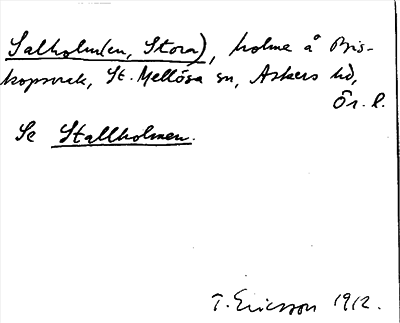 Salholm(en, Stora), holme å Bis-
kopsvrak, St. Mellösa sn, Askers hd,
Ör. l.
Se Stallholmen.
T. Ericsson 1912.